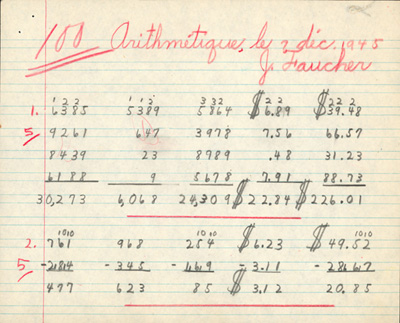 100 Arithmétique, le 7 déc. 1945
J. Faucher
1 2 2 1 1 2 3 3 2 2 2 2 2 2
1. 6385 5389 5864 $6.89 $39.48
5 9261 647 3978 7.56 66.57
8439 23 8789 .48 31.23
6188 9 5678 7.91 88.73
30,273 6,068 24,309 $22.84 $226.01
10 10 10 10 10 10
2. 761 968 254 $6.23 $49.52
5 -284 -345 -169 -3.11 -28.67
477 623 85 $3.12 20.85